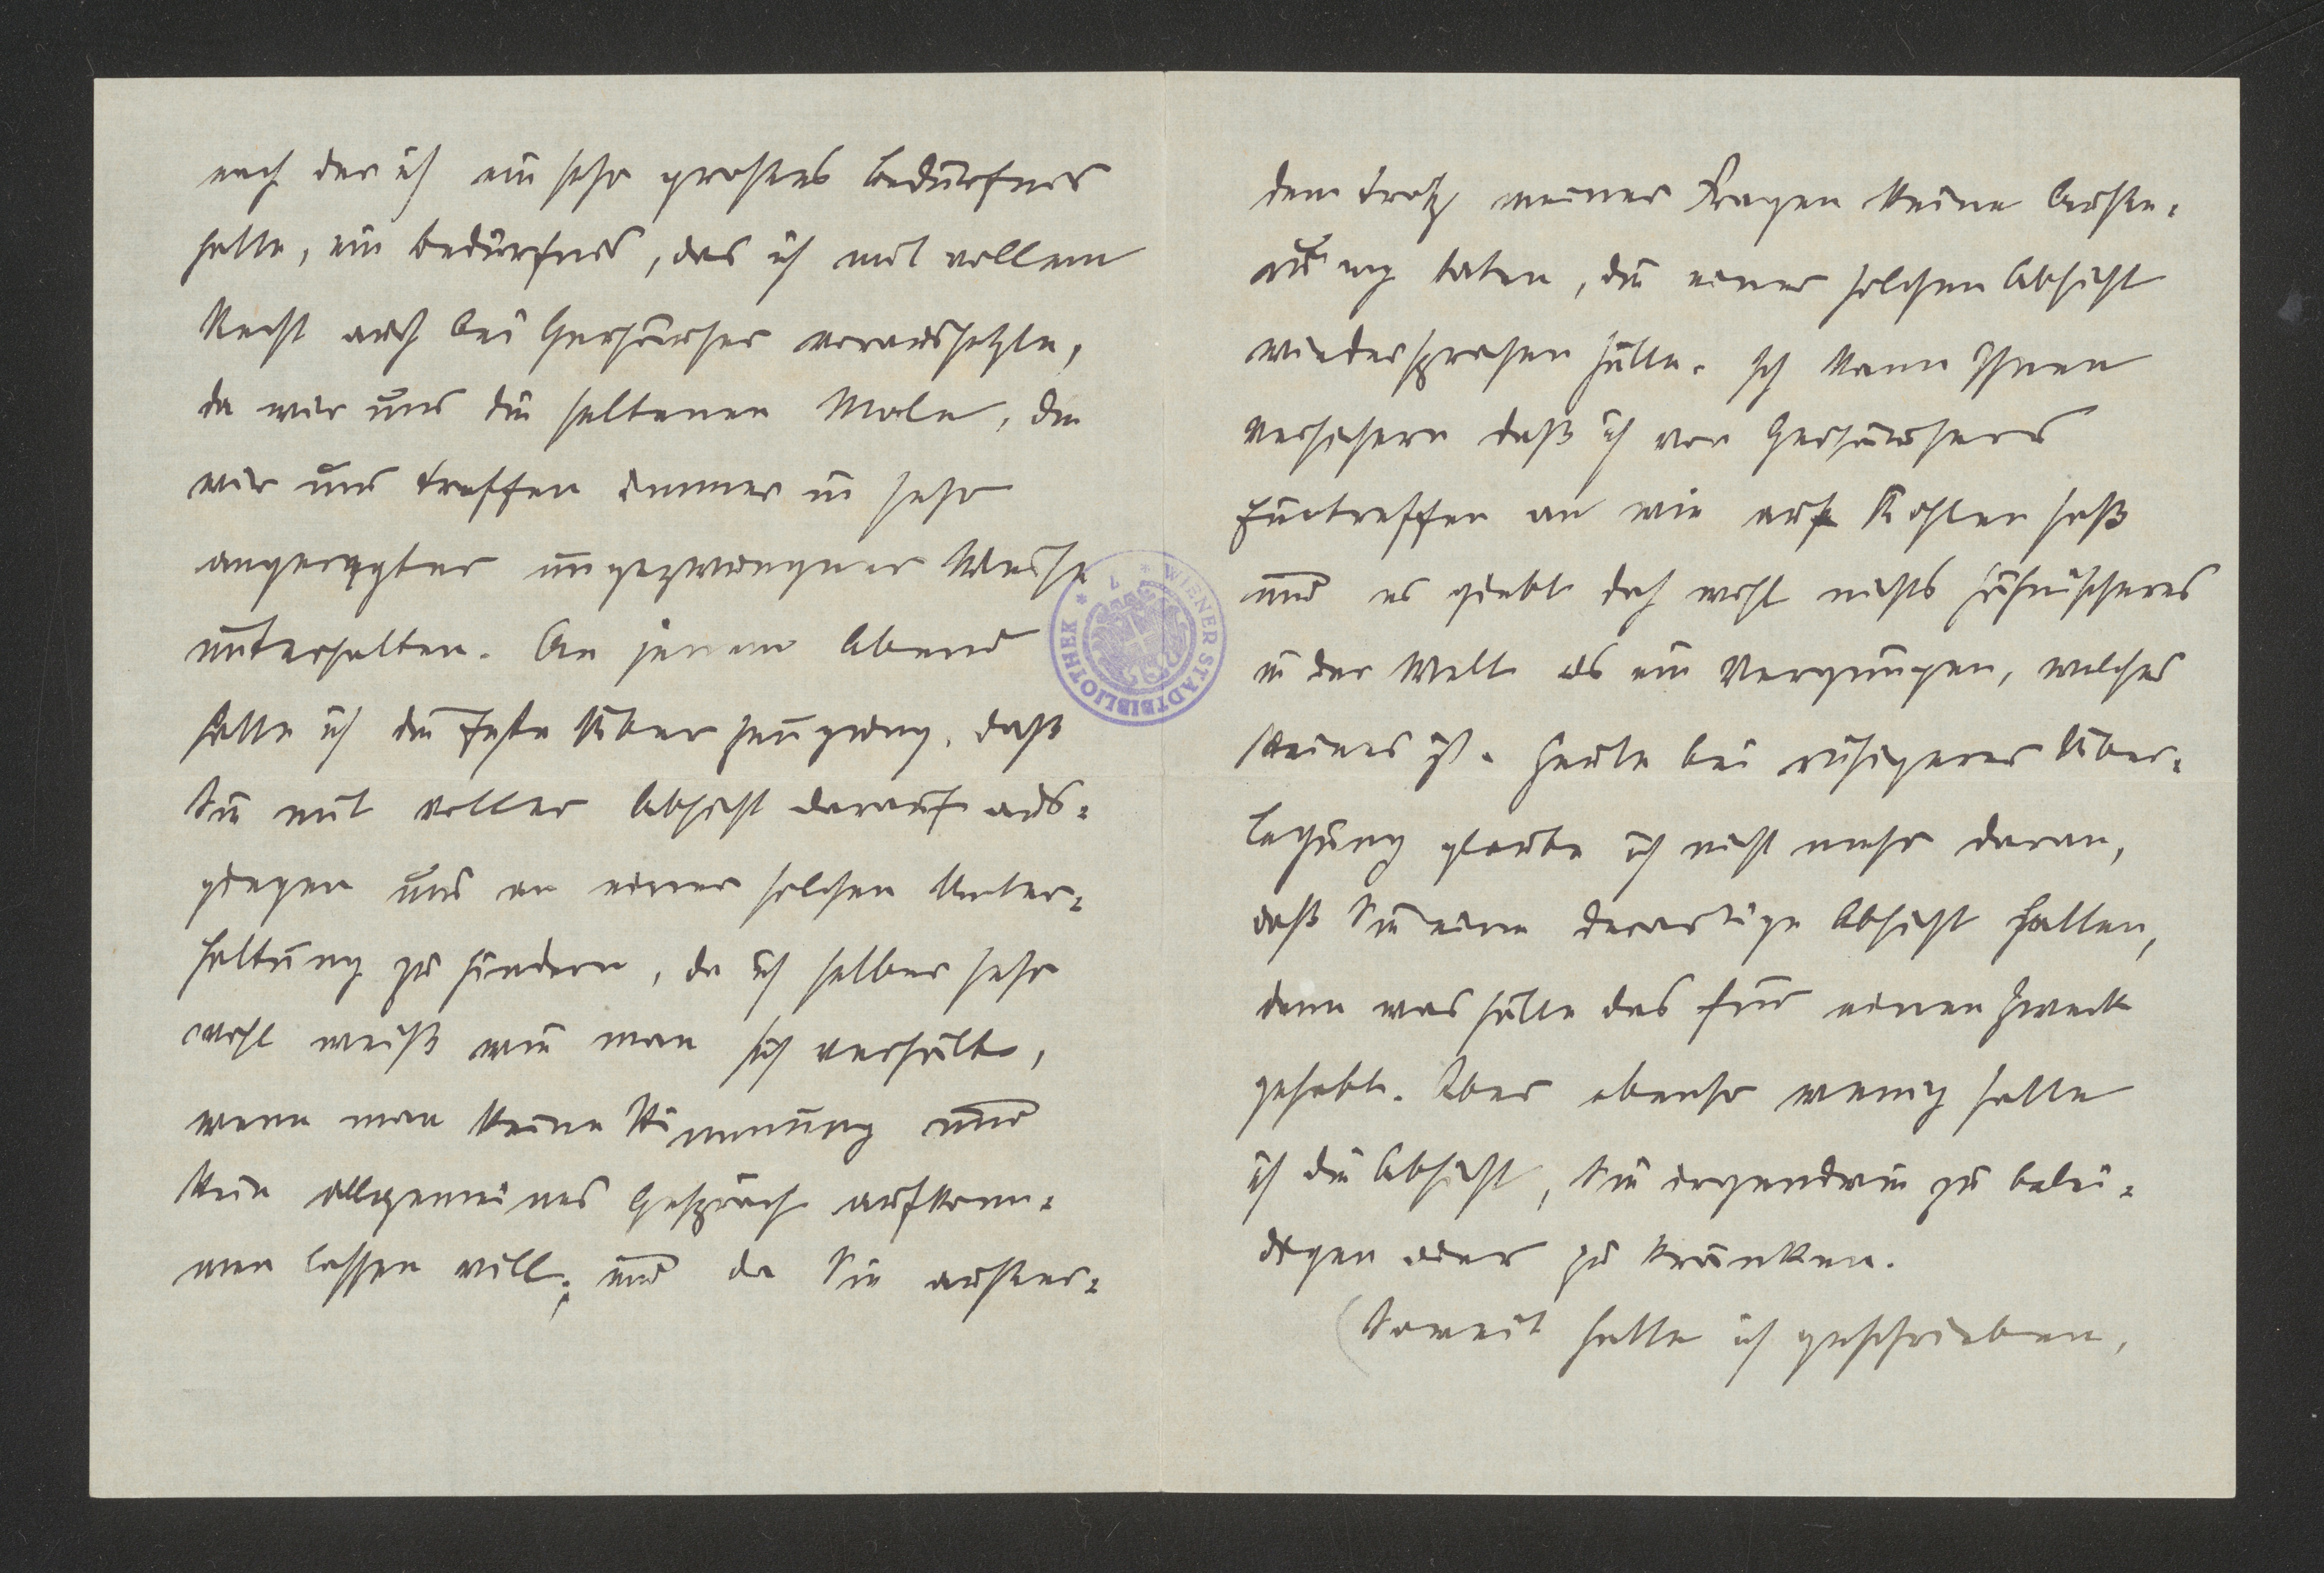 nach der ich ein sehr grosses Bedürfnis
hatte, ein Bedürfnis, das ich mit vollem
Recht auch bei Gerhäuser voraussetzte,
da wir uns die seltenen Male, die
wir uns treffen immer in sehr
angeregter ungezwungener Weise
unterhalten. An jenem Abend
hatte ich die feste Überzeugung, daß
Sie mit voller Absicht darauf aus-
giegen uns an einer solchen Unter-
haltung zu hindern, da ich selber sehr
wohl weiß wie man sich verhält,
wenn man keine Stimmung und
kein allgemeines Gespräch aufkom-
men lassen will; und da Sie ausser-
WIENER STADTBIBLIOTHEK
dem trotz meiner Fragen keine Äusse-
rung taten, die einer solchen Absicht
wiedersprochen hätte. Ich kann Ihnen
versichern daß ich vor Gerhäusers
Eintreffen an wie auf Kohlen saß
und es giebt doch wohl nichts
in der Welt als ein Vergnügen, welches
keines ist. Heute bei ruhigerer Über-
legung glaube ich nicht mehr daran,
daß Sie eine derartige Absicht hatten,
denn was hätte das für einen Zweck
gehabt. Aber ebenso wenig hatte
ich die Absicht, Sie irgendwie zu belei-
digen oder zu kränken.
(Soweit hatte ich geschrieben,